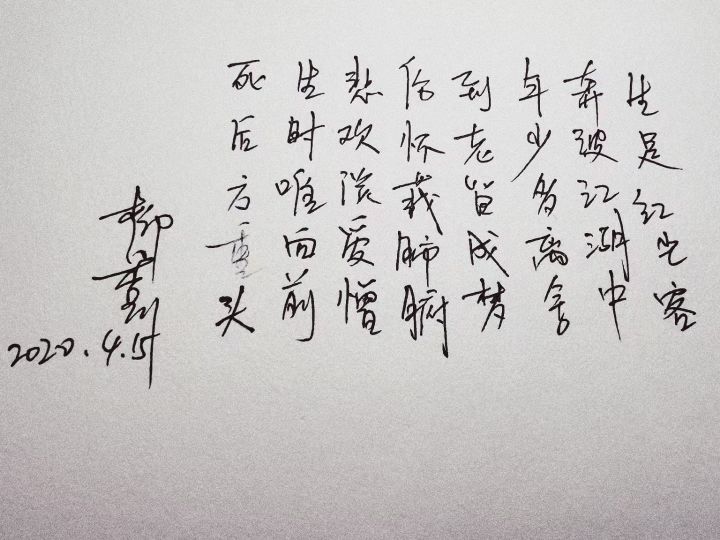 生是红尘客
奔波江湖中
年少多离家
到老皆成梦
伤怀裁肺腑
悲欢随爱憎
生时唯面前
死后方重头
2020.4.15